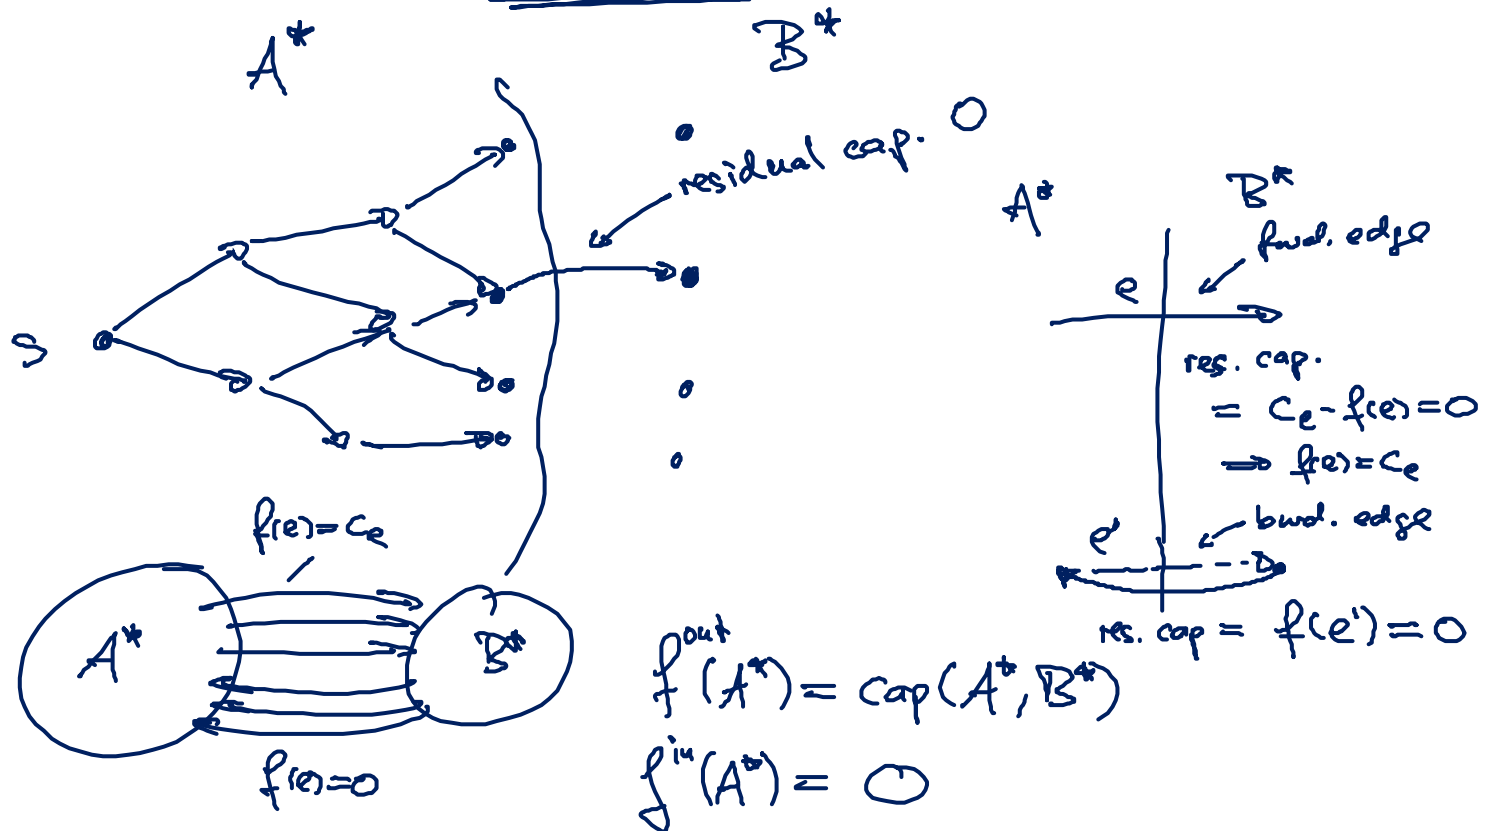 A* B*
residual cap. 0
s
A* B*
fwd. edge
e
res. cap.
= c_e - f(e) = 0
⇒ f(e) = c_e
bwd. edge
e'
res. cap = f(e') = 0
f(e) = c_e
A* B*
f(e) = 0
f^out (A*) = cap (A*, B*)
f^in (A*) = 0